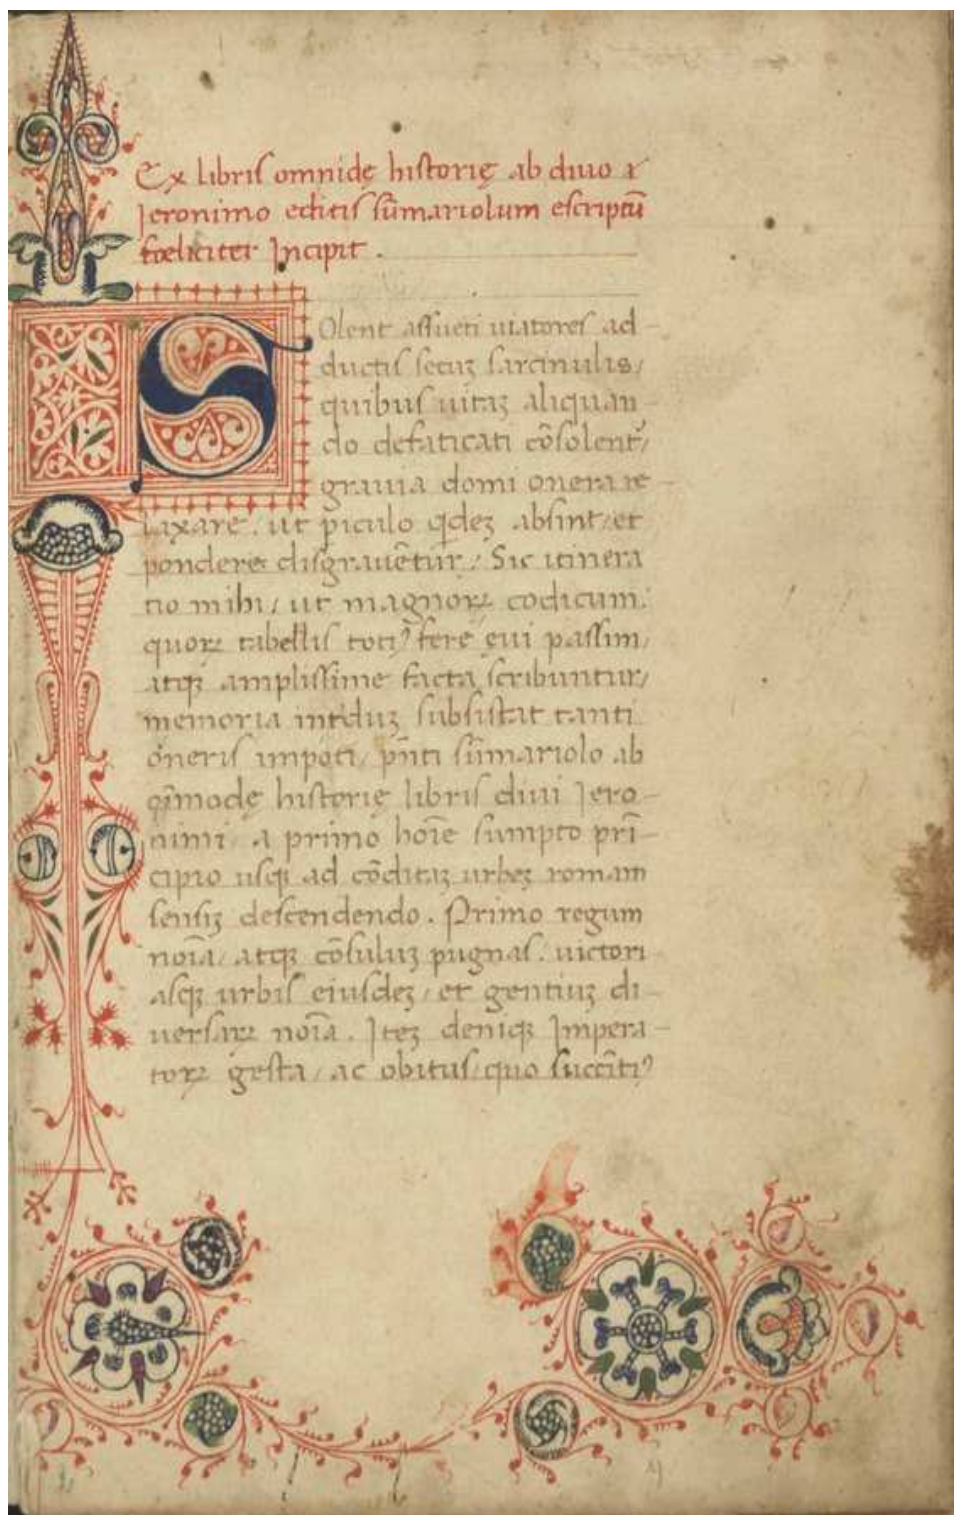 Ex libris omnidę historię ab diuo
Jeronimo editis sūmariolum escriptū
foeliciter Incipit.
SOlent assueti uiatores ad
ductis secuꝫ sarcinulis/
quibus uitaꝫ aliquan
do defaticati cōsolent᷑/
grauia domi onera re
laxare. ut ꝑiculo qͥdeꝫ absint/ et
pondere disgrauēt᷑ur/ Sic itinera
tio mihi/ ut magnoꝝ codicum.
quoꝝ tabellis totiꝰ fere ęui passim/
atqꝫ amplissime facta scribuntur/
memoria interduꝫ subsistat tanti
oneris impoti/ pn̄ti sūmariolo ab
oīmodę historię libris diui Jero
nimi/ a primo hoīe sumpto prī
cipio usqꝫ ad cōditaꝫ urbeꝫ romam
sensiꝫ descendendo. Primo regum
noīa/ atqꝫ cōsuluꝫ pugnas. uictori
asqꝫ urbis eiusdeꝫ/ et gentiuꝫ di
uersaꝝ noīa. Iteꝫ deniqꝫ Impera
toꝝ gesta/ ac obitus/ quo succītiꝰ